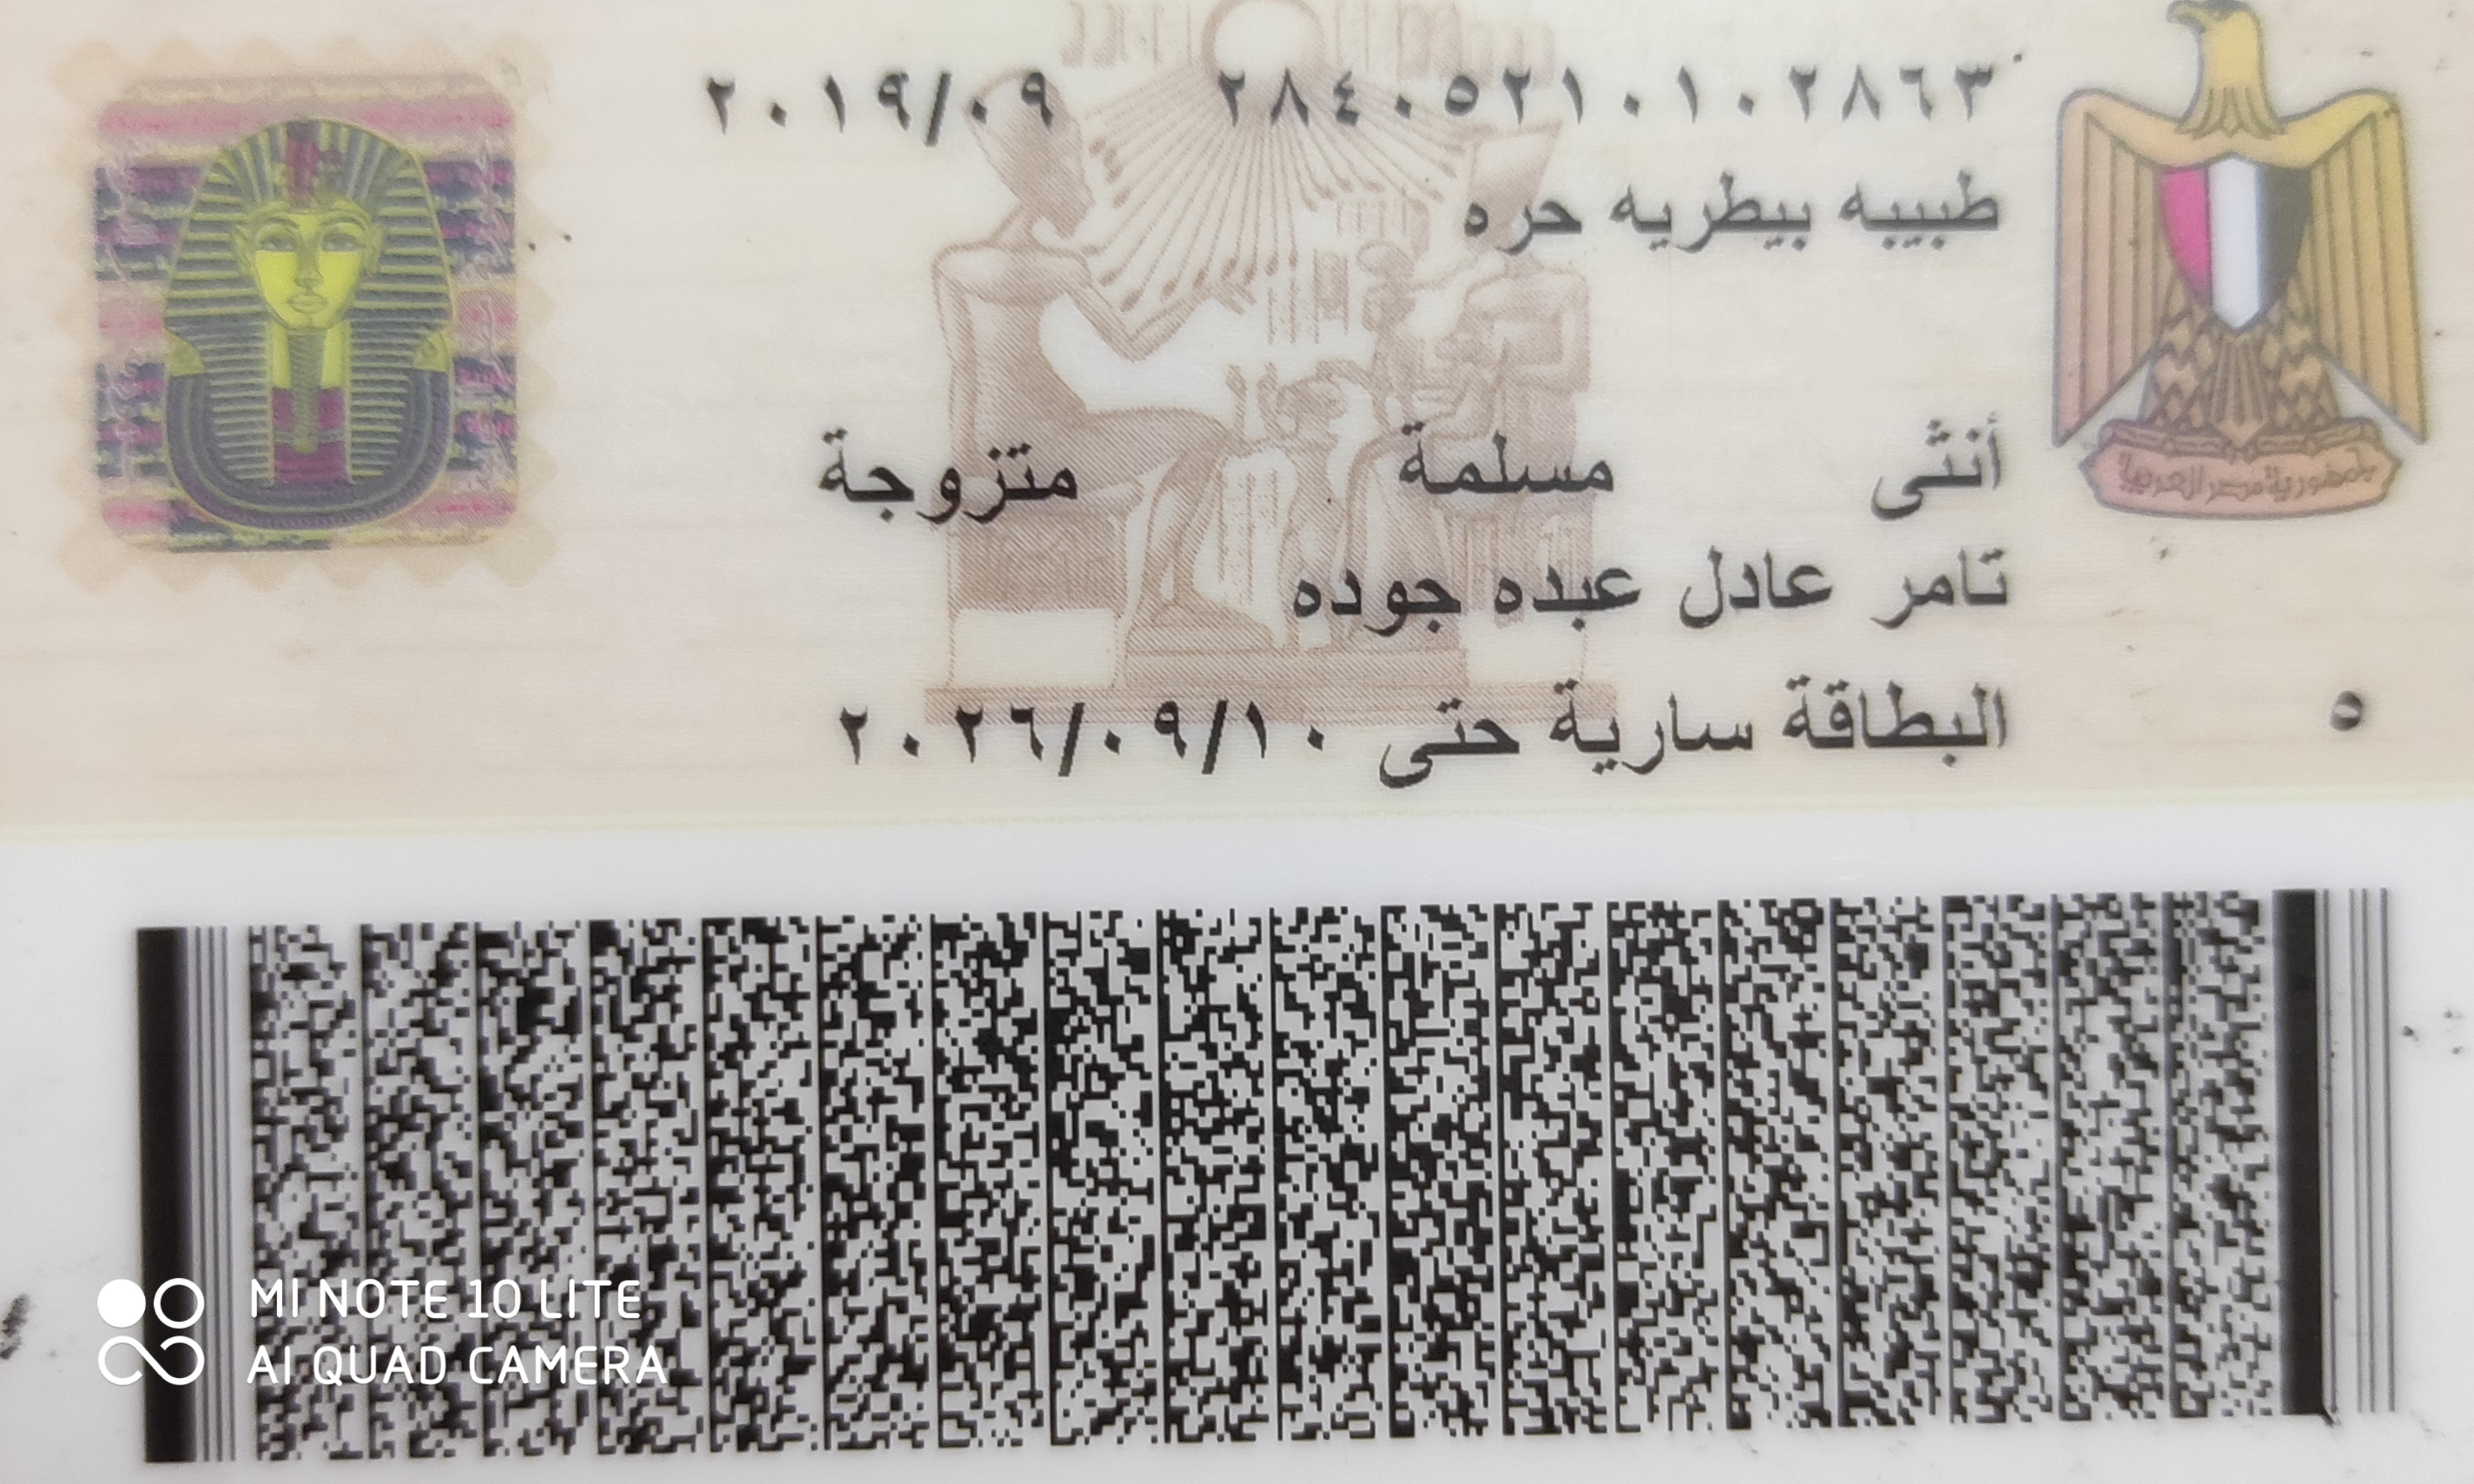 ٢٨٤٠٥٢١٠١٠٢٨٦٣ ٢٠١٩/٠٩
طبيبه بيطريه حره
أنثى مسلمة متزوجة
تامر عادل عبده جوده
البطاقة سارية حتى ٢٠٢٦/٠٩/١٠
٥
جمهورية مصر العربية
MI NOTE 10 LITE
AI QUAD CAMERA